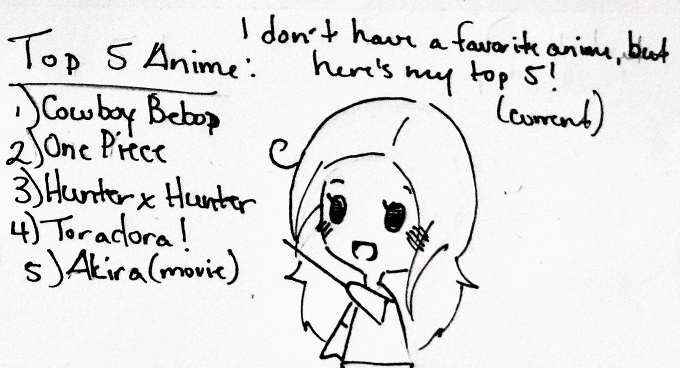 I don't have a favorite anime, but
here's my top 5!
(current)
Top 5 Anime:
1) Cowboy Bebop
2) One Piece
3) Hunter x Hunter
4) Toradora!
5) Akira (movie)